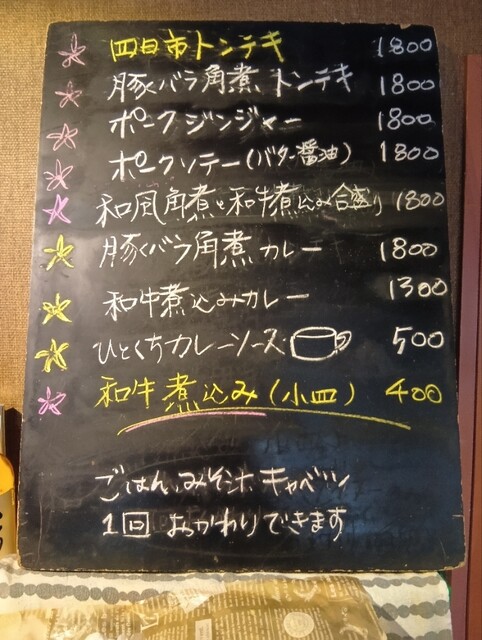 四日市トンテキ 1800
豚バラ角煮トンテキ 1800
ポークジンジャー 1800
ポークソテー(バター醤油) 1800
和風角煮と和牛煮込み合盛り 1800
豚バラ角煮カレー 1800
和牛煮込みカレー 1300
ひとくちカレーソース 500
和牛煮込み(小皿) 400
ごはん、みそ汁 キャベツ
1回 おかわりできます